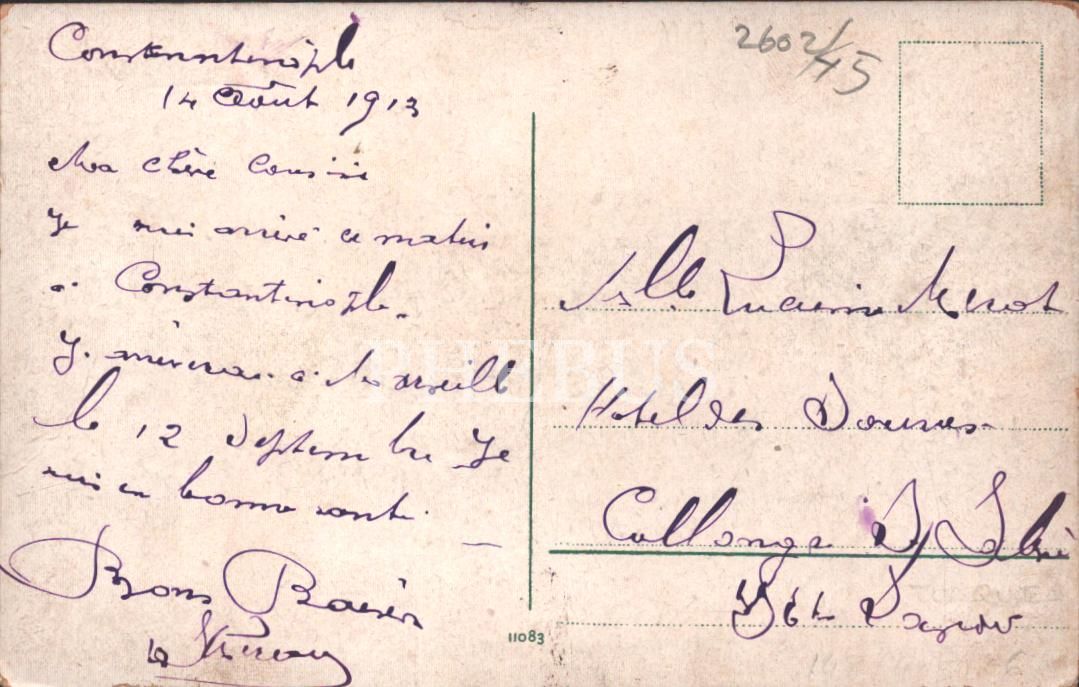 Constantinople
14 Août 1913
Ma chère cousine
Je suis arrivé ce matin
à Constantinople.
J. arriverai à Marseille
le 12 Septembre Je
suis en bonne santé.
Bons Baisers
2602/45
Mlle Lucienne
Hotel des Douanes
Collonges
Hte Savoie
11083
PHEBUS